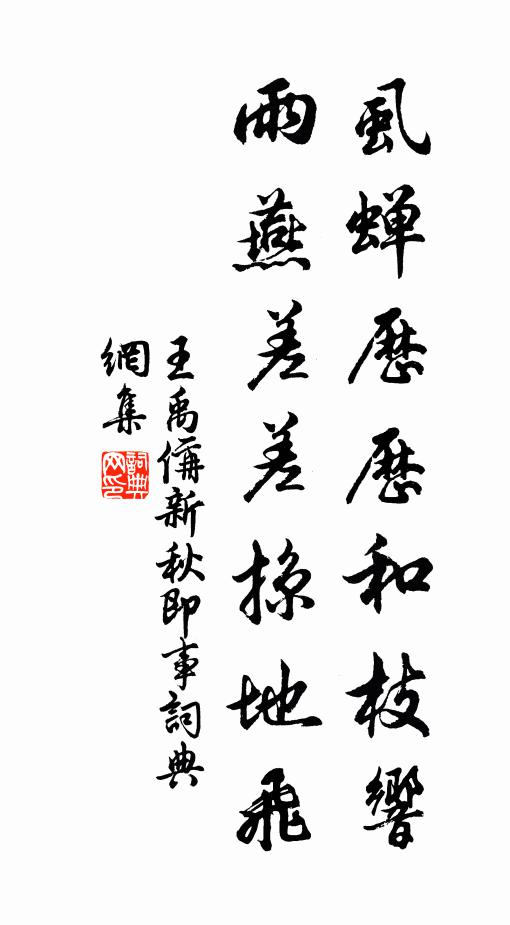 虱蝉歷歷和枝響
雨燕差差掠地飛
王禹偁新秋即事詞典
網集
詞典网印